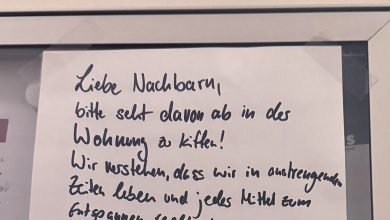 Liebe Nachbarn,
bitte seht davon ab in der
Wohnung zu kiffen!
Wir verstehen, dass wir in anstrengenden
Zeiten leben und jedes Mittel zum
Entspannen